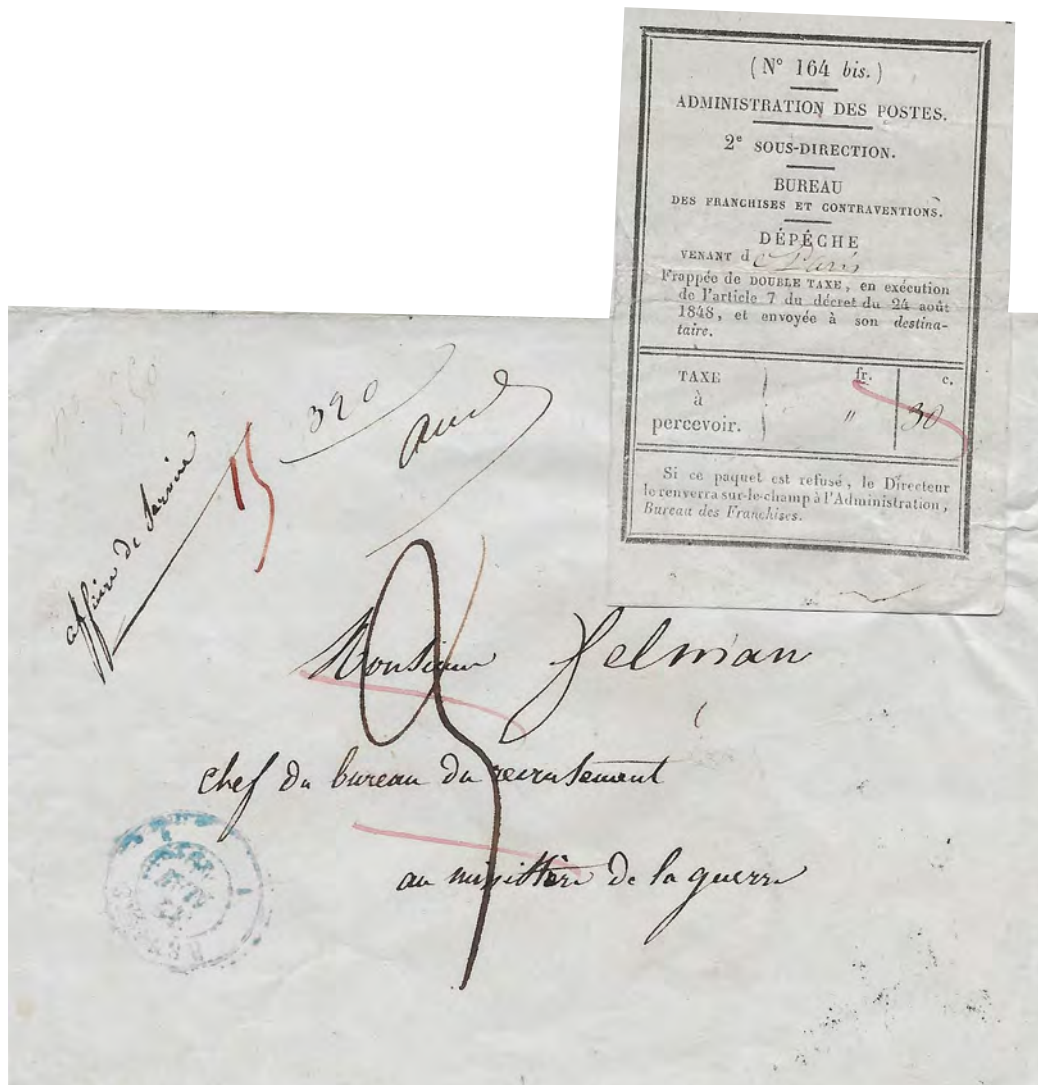 (N° 164 bis.)
ADMINISTRATION DES POSTES.
2e SOUS-DIRECTION.
BUREAU
DES FRANCHISES ET CONTRAVENTIONS.
DÉPÊCHE
VENANT de Paris
Frappée de DOUBLE TAXE, en exécution
de l'article 7 du décret du 24 août
1848, et envoyée à son destina-
taire.
TAXE
à
percevoir.
fr. c.
" 30
Si ce paquet est refusé, le Directeur
le renverra sur-le-champ à l'Administration,
Bureau des Franchises.
320
affaire de Service
15
Monsieur Felman
chef du bureau du recrutement
au ministère de la guerre